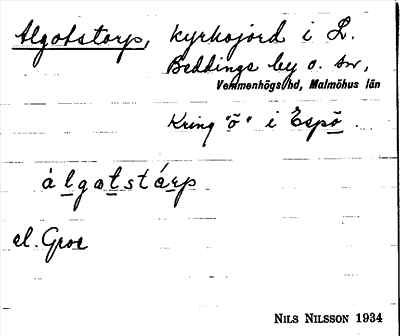 Algotstorp, kyrkojord i L.
Beddinge by o. sn,
Vemmenhögs hd, Malmöhus län
Kring "ö" i Espö.
álgotstárp
el. Gros
NILS NILSSON 1934